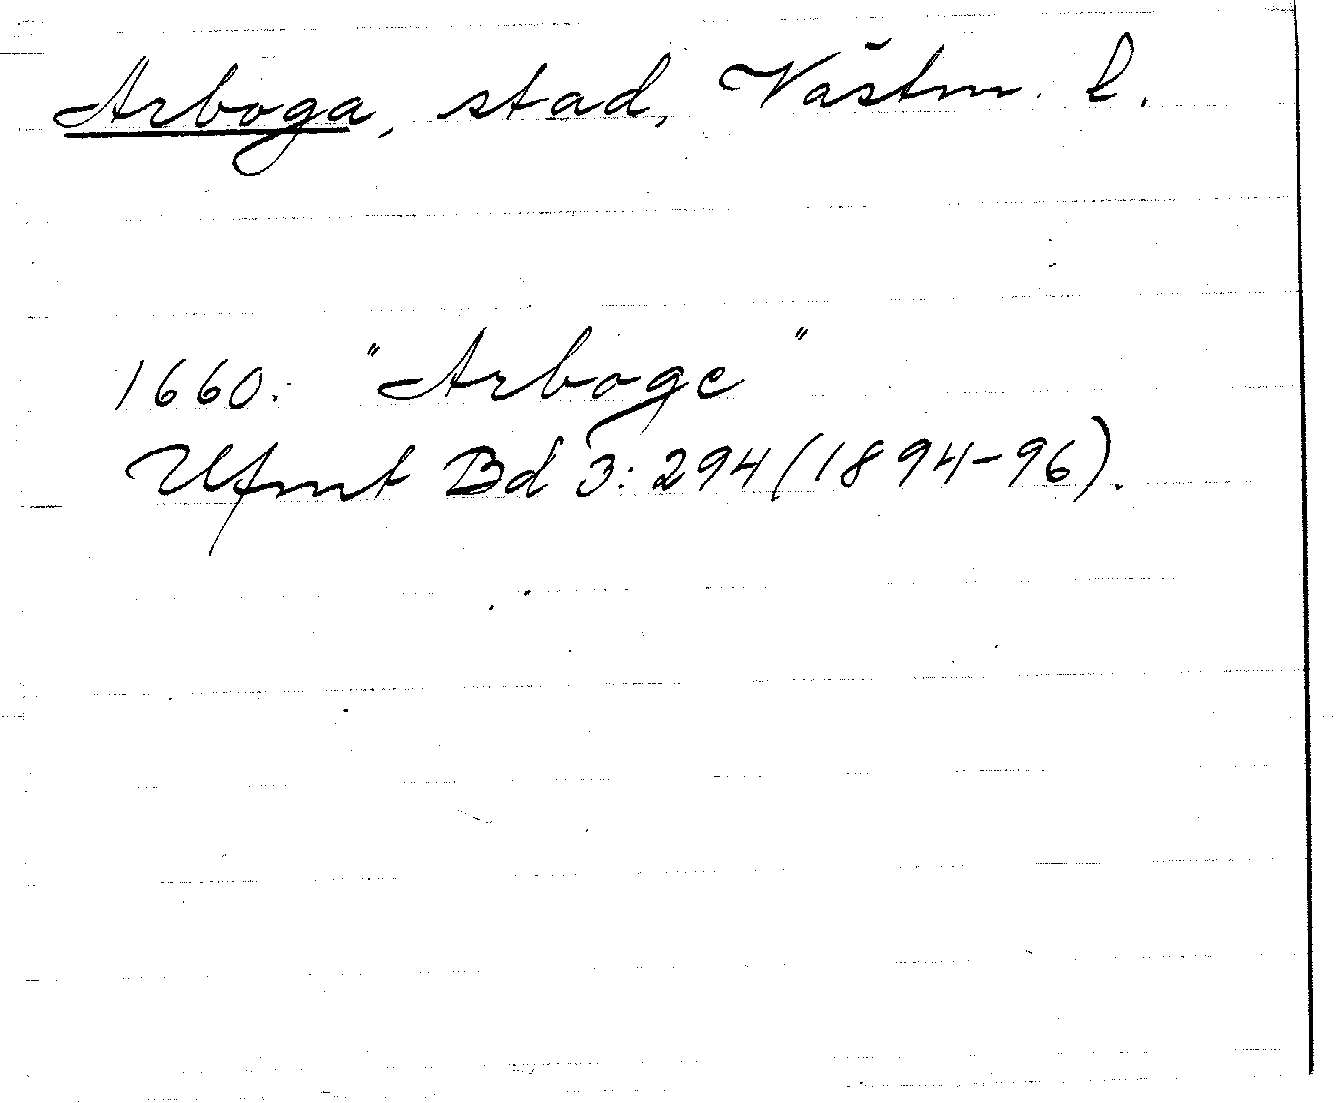 Arboga, stad, Västm. l.
1660. "Arboge"
Ufmt Bd 3: 294 (1894-96).